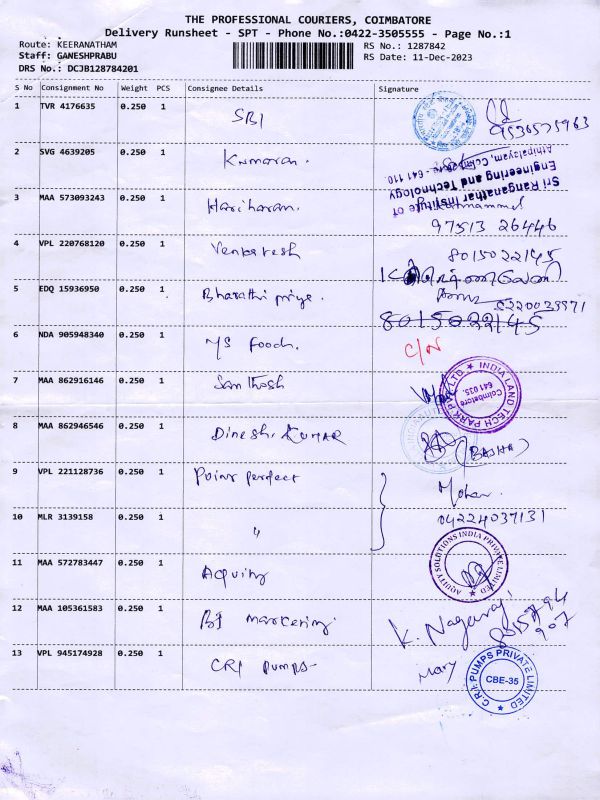 THE PROFESSIONAL COURIERS, COIMBATORE
Delivery Runsheet - SPT - Phone No.:0422-3505555 - Page No.:1
Route: KEERANATHAM RS No.: 1287842
Staff: GANESHPRABU RS Date: 11-Dec-2023
DRS No.: DCJB128784201
S No Consignment No Weight PCS Consignee Details Signature
1 TVR 4176635 0.250 1 SBI
9536575963
2 SVG 4639205 0.250 1 Kumaran.
Sri Ranganathar Institute of
Engineering and Technology
Athipalayam, Coimbatore - 641 110.
3 MAA 573093243 0.250 1 Hariharan.
97513 26446
4 VPL 220768120 0.250 1 Venkatesh 8015022145
5 EDQ 15936950 0.250 1 Bharathi priya.
8015022145
6 NDA 905948340 0.250 1 MS Foods. C/N
7 MAA 862916146 0.250 1 Santhosh
INDIA LAND TECH PARK PVT LTD
Coimbatore
641 035.
8 MAA 862946546 0.250 1 Dinesh. KUMAR (BASHA)
9 VPL 221128736 0.250 1 Point perfect Mohan
10 MLR 3139158 0.250 1 " 04224037131
11 MAA 572783447 0.250 1 Aquity
AQUITY SOLUTIONS INDIA PRIVATE LIMITED
12 MAA 105361583 0.250 1 BJ marketing. K. Nagaraj
13 VPL 945174928 0.250 1 CRI pumps- mary
C.R.I. PUMPS PRIVATE LIMITED
CBE-35